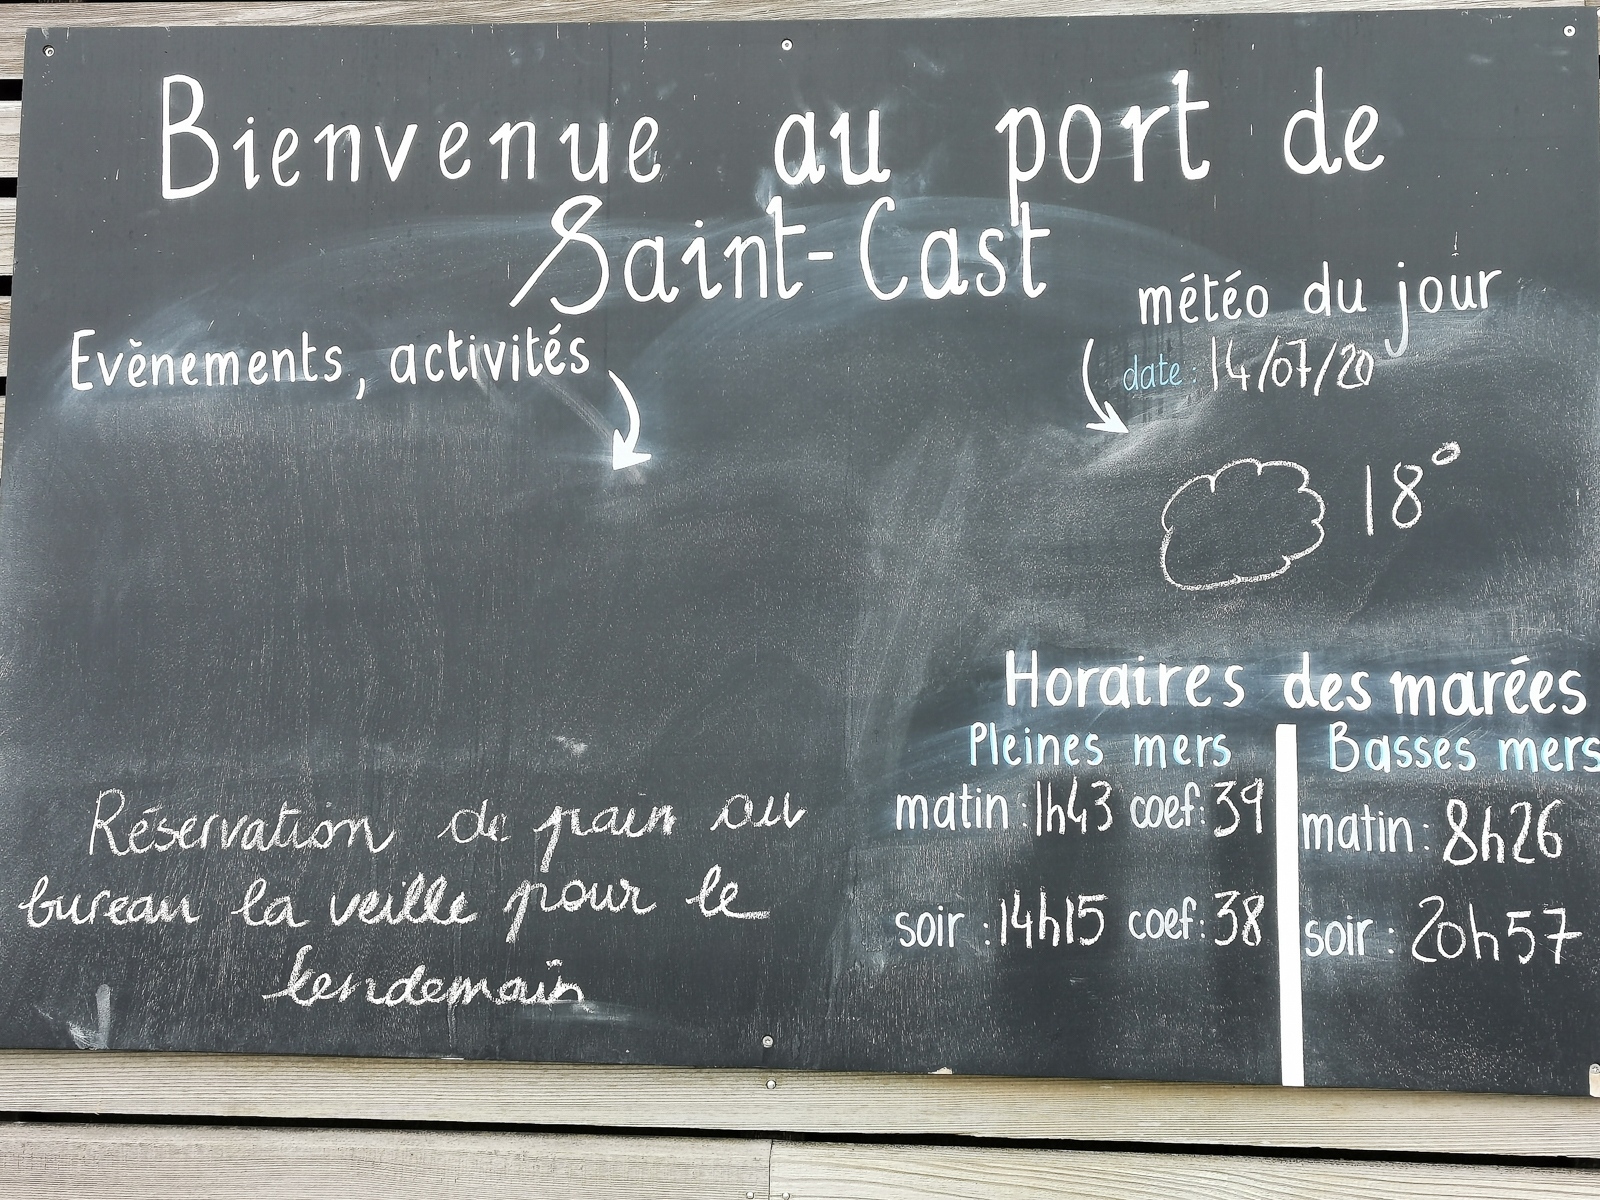 Bienvenue au port de
Saint-Cast
Evènements, activités
météo du jour
date : 14/07/20
18°
Réservation de pain au
bureau la veille pour le
lendemain
Horaires des marées
Pleines mers
matin : 1h43 coef : 39
soir : 14h15 coef : 38
Basses mers
matin : 8h26
soir : 20h57